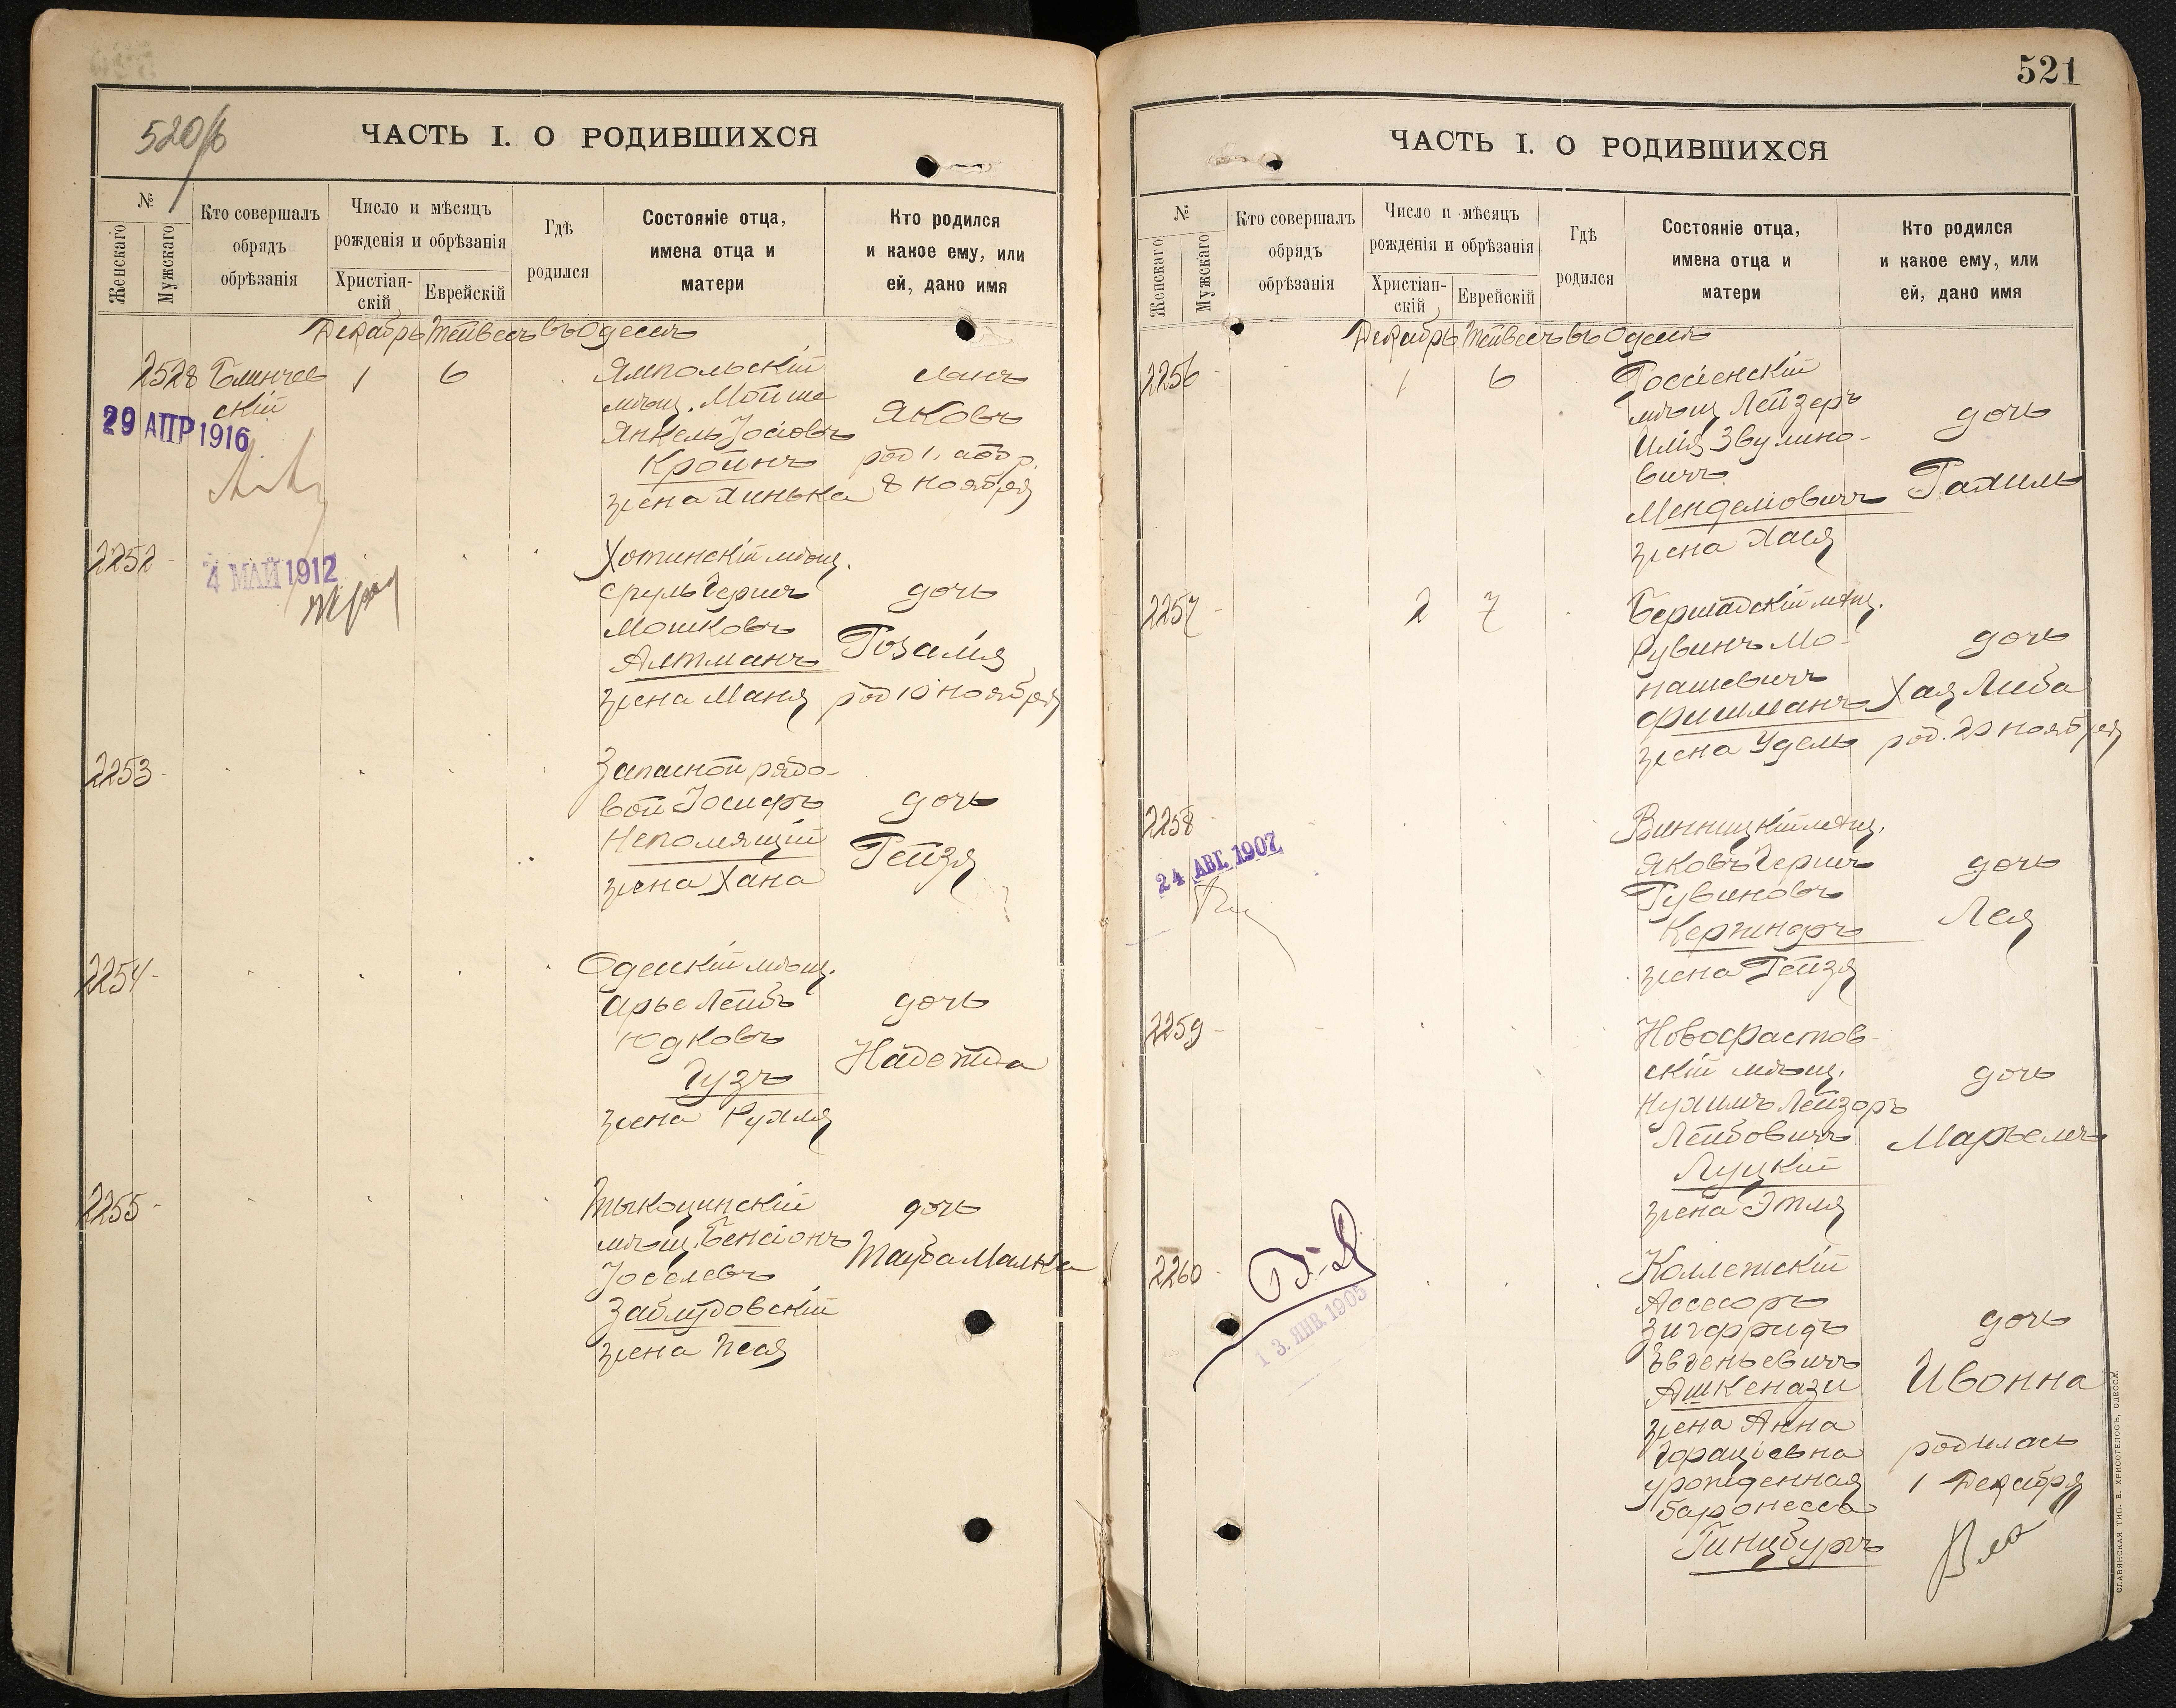 520/б
ЧАСТЬ I. О РОДИВШИХСЯ
№
Женскаго
Мужскаго
Кто совершалъ
обрядъ
обрѣзанія
Число и мѣсяцъ
рожденія и обрѣзанія
Христіан-
скій
Еврейскій
Гдѣ
родился
Состояніе отца,
имена отца и
матери
Кто родился
и какое ему, или
ей, дано имя
Декабрь Тейвесъ въ Одессѣ
2528 Блинчев
скій
1 6
29 АПР 1916
Ямпольскій
мѣщ. Мойше
Янкель Іосіовъ
Кройнъ
жена Хинька
сынъ
Яковъ
род
8 ноября
2252
4 МАЙ 1912
Хотинскій мѣщ.
Сруль Гершъ
Мошковъ
Алтманъ
жена Маня
дочь
Розалія
род 10 ноября
2253
Запасной рядо-
вой Іосифъ
Непомящій
жена Хана
дочь
Рейзя
2254
Одесскій мѣщ.
Арье Лейбъ
Юдковъ
Гузъ
жена Рухля
дочь
Надежда
2255
Тыкоцинскій
мѣщ. Бенсіонъ
Іоселевъ
Заблудовскій
жена Песя
дочь
Тауба Малка
521
ЧАСТЬ I. О РОДИВШИХСЯ
№
Женскаго
Мужскаго
Кто совершалъ
обрядъ
обрѣзанія
Число и мѣсяцъ
рожденія и обрѣзанія
Христіан-
скій
Еврейскій
Гдѣ
родился
Состояніе отца,
имена отца и
матери
Кто родился
и какое ему, или
ей, дано имя
Декабрь Тейвесъ въ Одессѣ
2256
1 6
Россіенскій
мѣщ Лейзеръ
Илія Звулино-
вичъ
Менделіовичъ
жена Хася
дочь
Рахиль
2257
2 7
Бершадскій мѣщ.
Рувинъ Мо-
нашевичъ
Фишманъ
жена Удель
дочь
Хая Либа
род. 20 ноября
2258
24 АВГ. 1907
Винницкій мѣщ.
Яковъ Гершъ
Рувиновъ
Кержнеръ
жена Рейзя
дочь
Лея
2259
Новофастов-
скій мѣщ.
Нухимъ Лейзоръ
Лейбовичъ
Луцкій
жена Этля
дочь
Марьемъ
2260
13. ЯНВ. 1905
Коллежскій
Ассесоръ
Зигфридъ
Евгеньевичъ
Ашкенази
жена Анна
Гораціевна
урожденная
баронесса
Гинцбургъ
дочь
Ивонна
родилась
1 Декабря
СЛАВЯНСКАЯ ТИП. Е. ХРИСОГЕЛОСЪ, ОДЕССА.